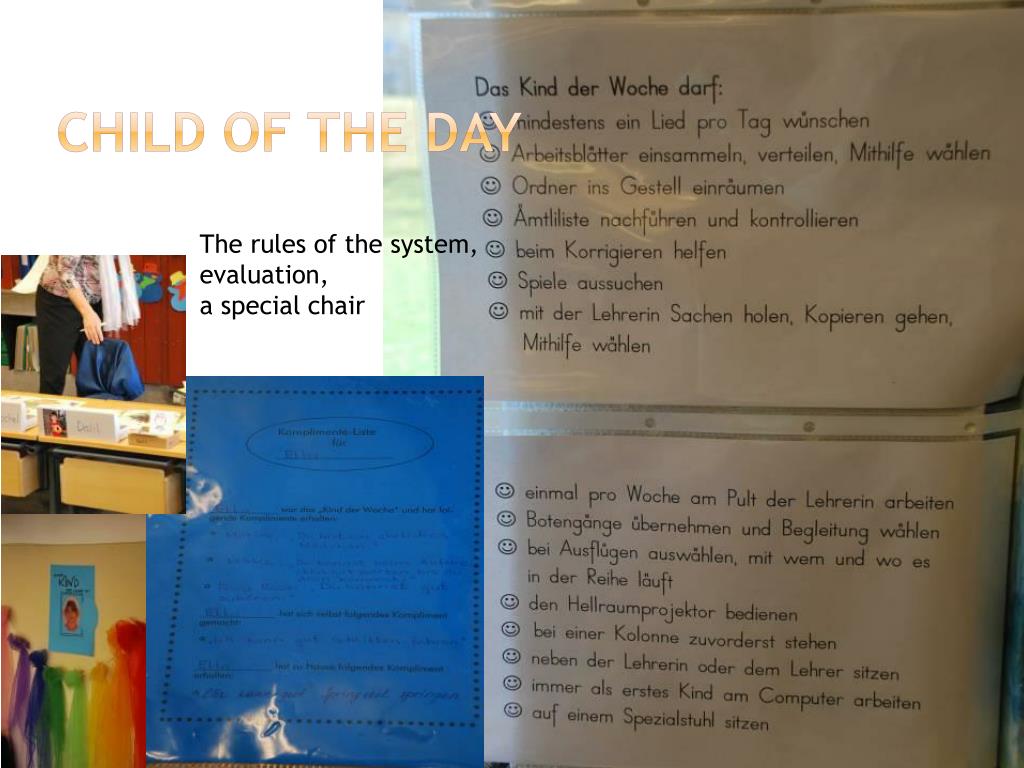 CHILD OF THE DAY
The rules of the system,
evaluation,
a special chair
Das Kind der Woche darf:
mindestens ein Lied pro Tag wünschen
Arbeitsblätter einsammeln, verteilen, Mithilfe wählen
Ordner ins Gestell einräumen
Ämtliliste nachführen und kontrollieren
beim Korrigieren helfen
Spiele aussuchen
mit der Lehrerin Sachen holen, Kopieren gehen,
Mithilfe wählen
einmal pro Woche am Pult der Lehrerin arbeiten
Botengänge übernehmen und Begleitung wählen
bei Ausflügen auswählen, mit wem und wo es
in der Reihe läuft
den Hellraumprojektor bedienen
bei einer Kolonne zuvorderst stehen
neben der Lehrerin oder dem Lehrer sitzen
immer als erstes Kind am Computer arbeiten
auf einem Spezialstuhl sitzen
Dalil
KIND
Komplimente-Liste
für
war das „Kind der Woche" und hat fol-
gende Komplimente erhalten:
hat sich selbst folgendes Kompliment
gemacht:
hat zu Hause folgendes Kompliment
erhalten: